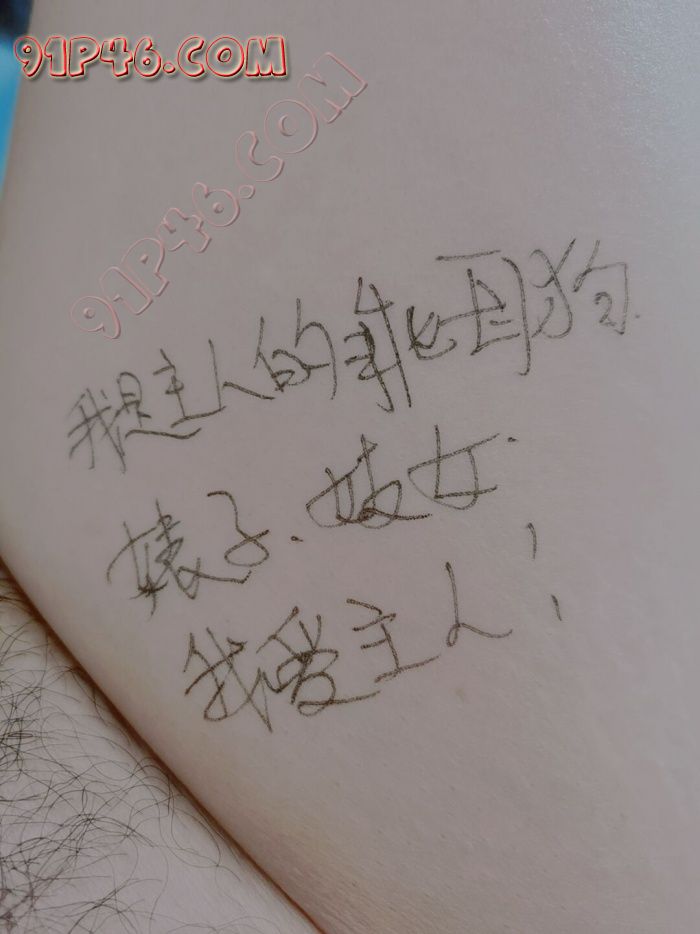 91P46.COM
91P46.COM
我是主人的狗
婊子、妓女
我爱主人!